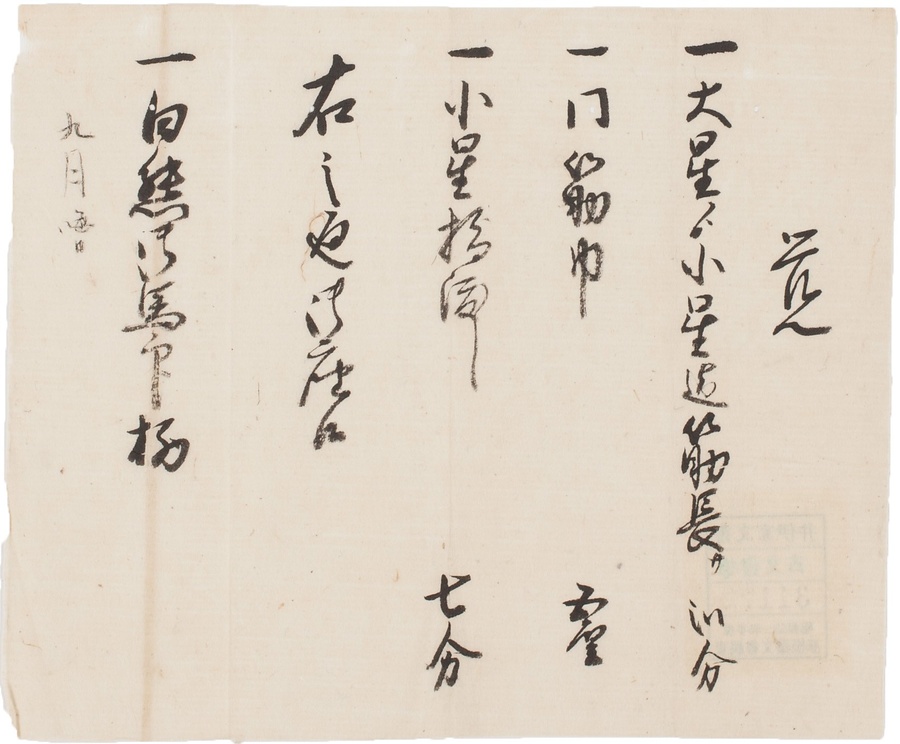 覚
一大星ゟ小星迄筋長サ 弐分
一同筋巾 五厘
一小星指渡 七分
右之通御座候
一白熊御馬印 柄
九月